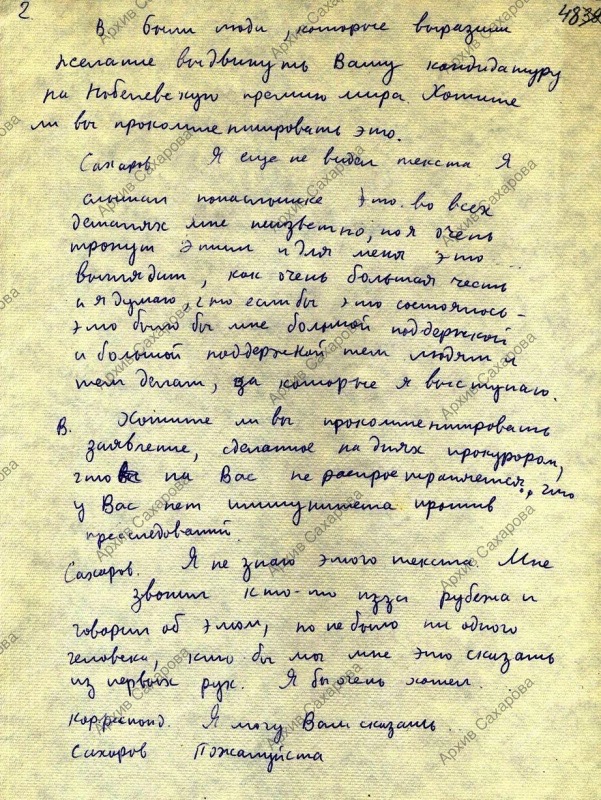 2
4838
В были люди, которые выразили
желание выдвинуть Вашу кандидатуру
на Нобелевскую премию мира. Хотите
ли вы прокомментировать это.
Сахаров. Я еще не видел текста Я
слышал понаслышке Это во всех
деталях мне неизвестно, но я очень
тронут этим и для меня это
выглядит, как очень большая честь
и я думаю, что если бы это состоялось –
это было бы мне большой поддержкой
и большой поддержкой тем людям и
тем делам, за которые я выступаю.
В. Хотите ли вы прокомментировать
заявление, сделанное на днях прокурором,
что на Вас не распространяется, что
у Вас нет иммунитета против
преследований.
Сахаров. Я не знаю этого текста. Мне
звонил кто-то из-за рубежа и
говорил об этом, но не было ни одного
человека, кто бы мог мне это сказать
из первых рук. Я бы очень хотел.
Корреспонд. Я могу Вам сказать.
Сахаров Пожалуйста
Архив Сахарова